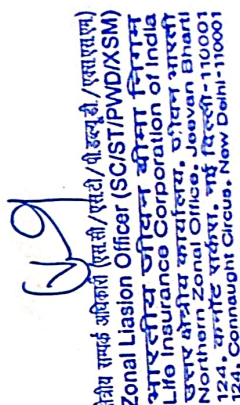 क्षेत्रीय सम्पर्क अधिकारी (एस.सी/एसटी/पी.डब्ल्यू.डी./एक्स.एस.एम)
Zonal Liasion Officer (SC/ST/PWD/XSM)
भारतीय जीवन बीमा निगम
Life Insurance Corporation of India
उत्तर क्षेत्रीय कार्यालय, जीवन भारती
Northern Zonal Office, Jeevan Bharti
124, कनॉट सर्कस, नई दिल्ली-110001
124, Connaught Circus, New Delhi-110001